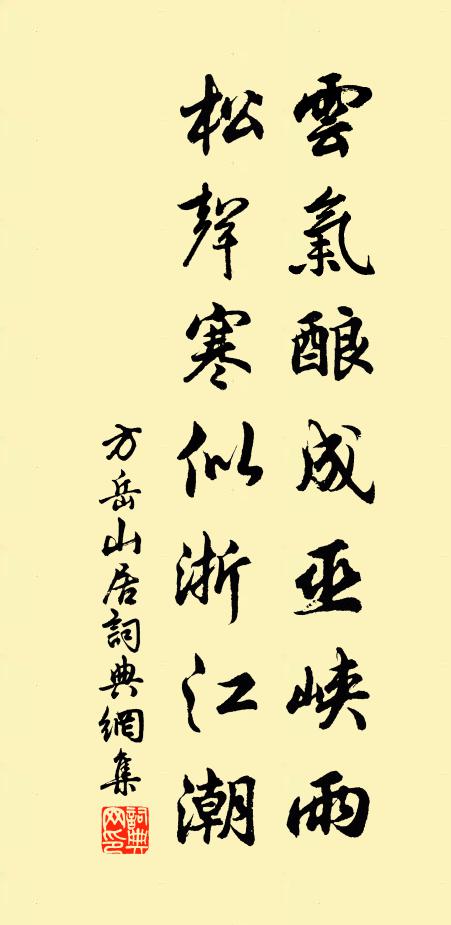 雲氣酿成巫峡雨
松聲寒似浙江潮
方岳山居詞典網集
詞典網印